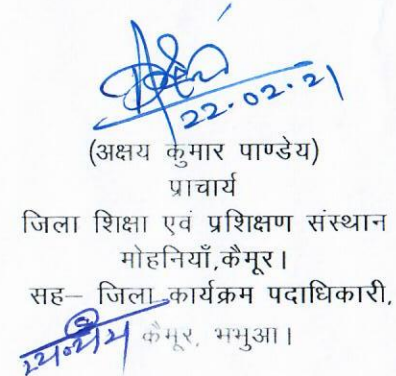 22.02.21
(अक्षय कुमार पाण्डेय)
प्राचार्य
जिला शिक्षा एवं प्रशिक्षण संस्थान
मोहनियाँ,कैमूर।
सह– जिला कार्यक्रम पदाधिकारी,
22/02/21 कैमूर, भभुआ।